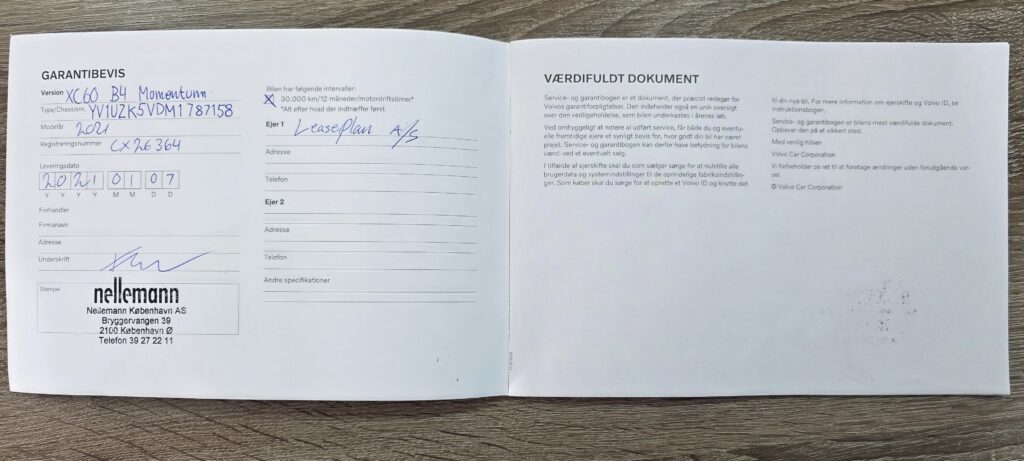 GARANTIBEVIS
Version XC60 B4 Momentum
Type/Chassisnr. YV1UZK5VDM1787158
Modelår 2021
Registreringsnummer CX26364
Leveringsdato
2021 01 07
Y Y Y Y M M D D
Forhandler
Firmanavn
Adresse
Underskrift
Stempel
nellemann
Nellemann København AS
Bryggervangen 39
2100 København Ø
Telefon 39 27 22 11
Bilen har følgende intervaller:
X 30.000 km/12 måneder/motordriftstimer*
*Alt efter hvad der indtræffer først
Ejer 1 Leaseplan A/S
Adresse
Telefon
Ejer 2
Adresse
Telefon
Andre specifikationer
VÆRDIFULDT DOKUMENT
Service- og garantibogen er et dokument, der præcist redegør for
Volvos garantiforpligtelser. Den indeholder også en unik oversigt
over den vedligeholdelse, som bilen underkastes i årenes løb.
Ved omhyggeligt at notere al udført service, får både du og eventu-
elle fremtidige ejere et synligt bevis for, hvor godt din bil har været
plejet. Service- og garantibogen kan derfor have betydning for bilens
værdi ved et eventuelt salg.
I tilfælde af ejerskifte skal du som sælger sørge for at nulstille alle
brugerdata og systemindstillinger til de oprindelige fabriksindstillin-
ger. Som køber skal du sørge for at oprette et Volvo ID og knytte det
til din nye bil. For mere information om ejerskifte og Volvo ID, se
instruktionsbogen.
Service- og garantibogen er bilens mest værdifulde dokument.
Opbevar den på et sikkert sted.
Med venlig hilsen
Volvo Car Corporation
Vi forbeholder os ret til at foretage ændringer uden forudgående var-
sel.
© Volvo Car Corporation